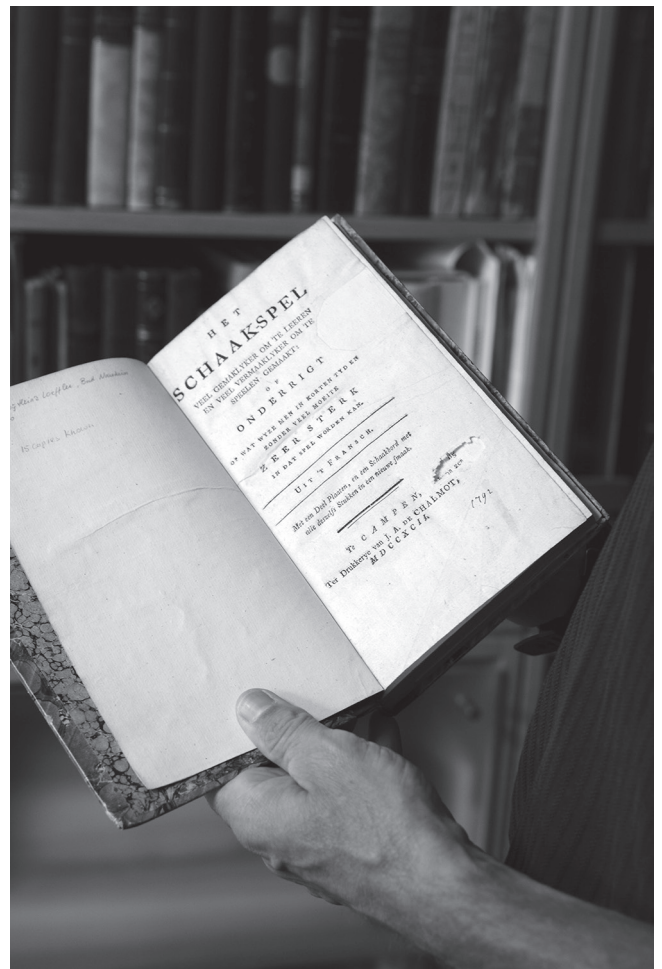 15 Cupfer
HET
SCHAAKSPEL
VEEL GEMAKLYKER OM TE LEEREN
EN VEEL VERMAAKLYKER OM TE
SPEELEN GEMAAKT;
OF
ONDERRIGT
OP WAT WYZE MEN IN KORTEN TYD EN
ZONDER VEEL MOEITE
ZEER STERK
IN DAT SPEL WORDEN KAN.
UIT 'T FRANSCH.
Met een Deel Plaaten, en een Schaakbord met
alle deszelfs Stukken in een nieuwe smaak.
Te CAMPEN,
Ter Drukkerye van J. A. DE CHALMOT,
MDCCXCII.
1792